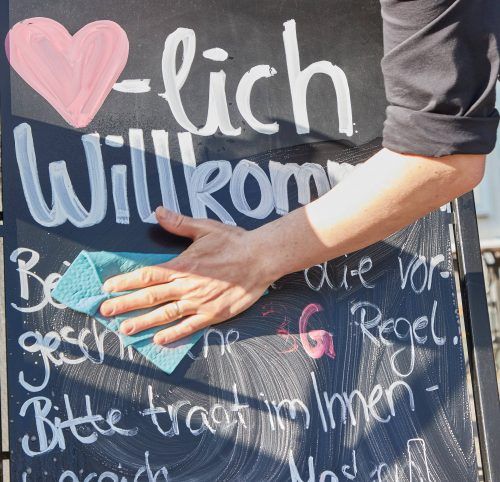 -lich
Willkomm
Be die vor-
gesch ne 3G Regel.
Bitte tragt im Innen-